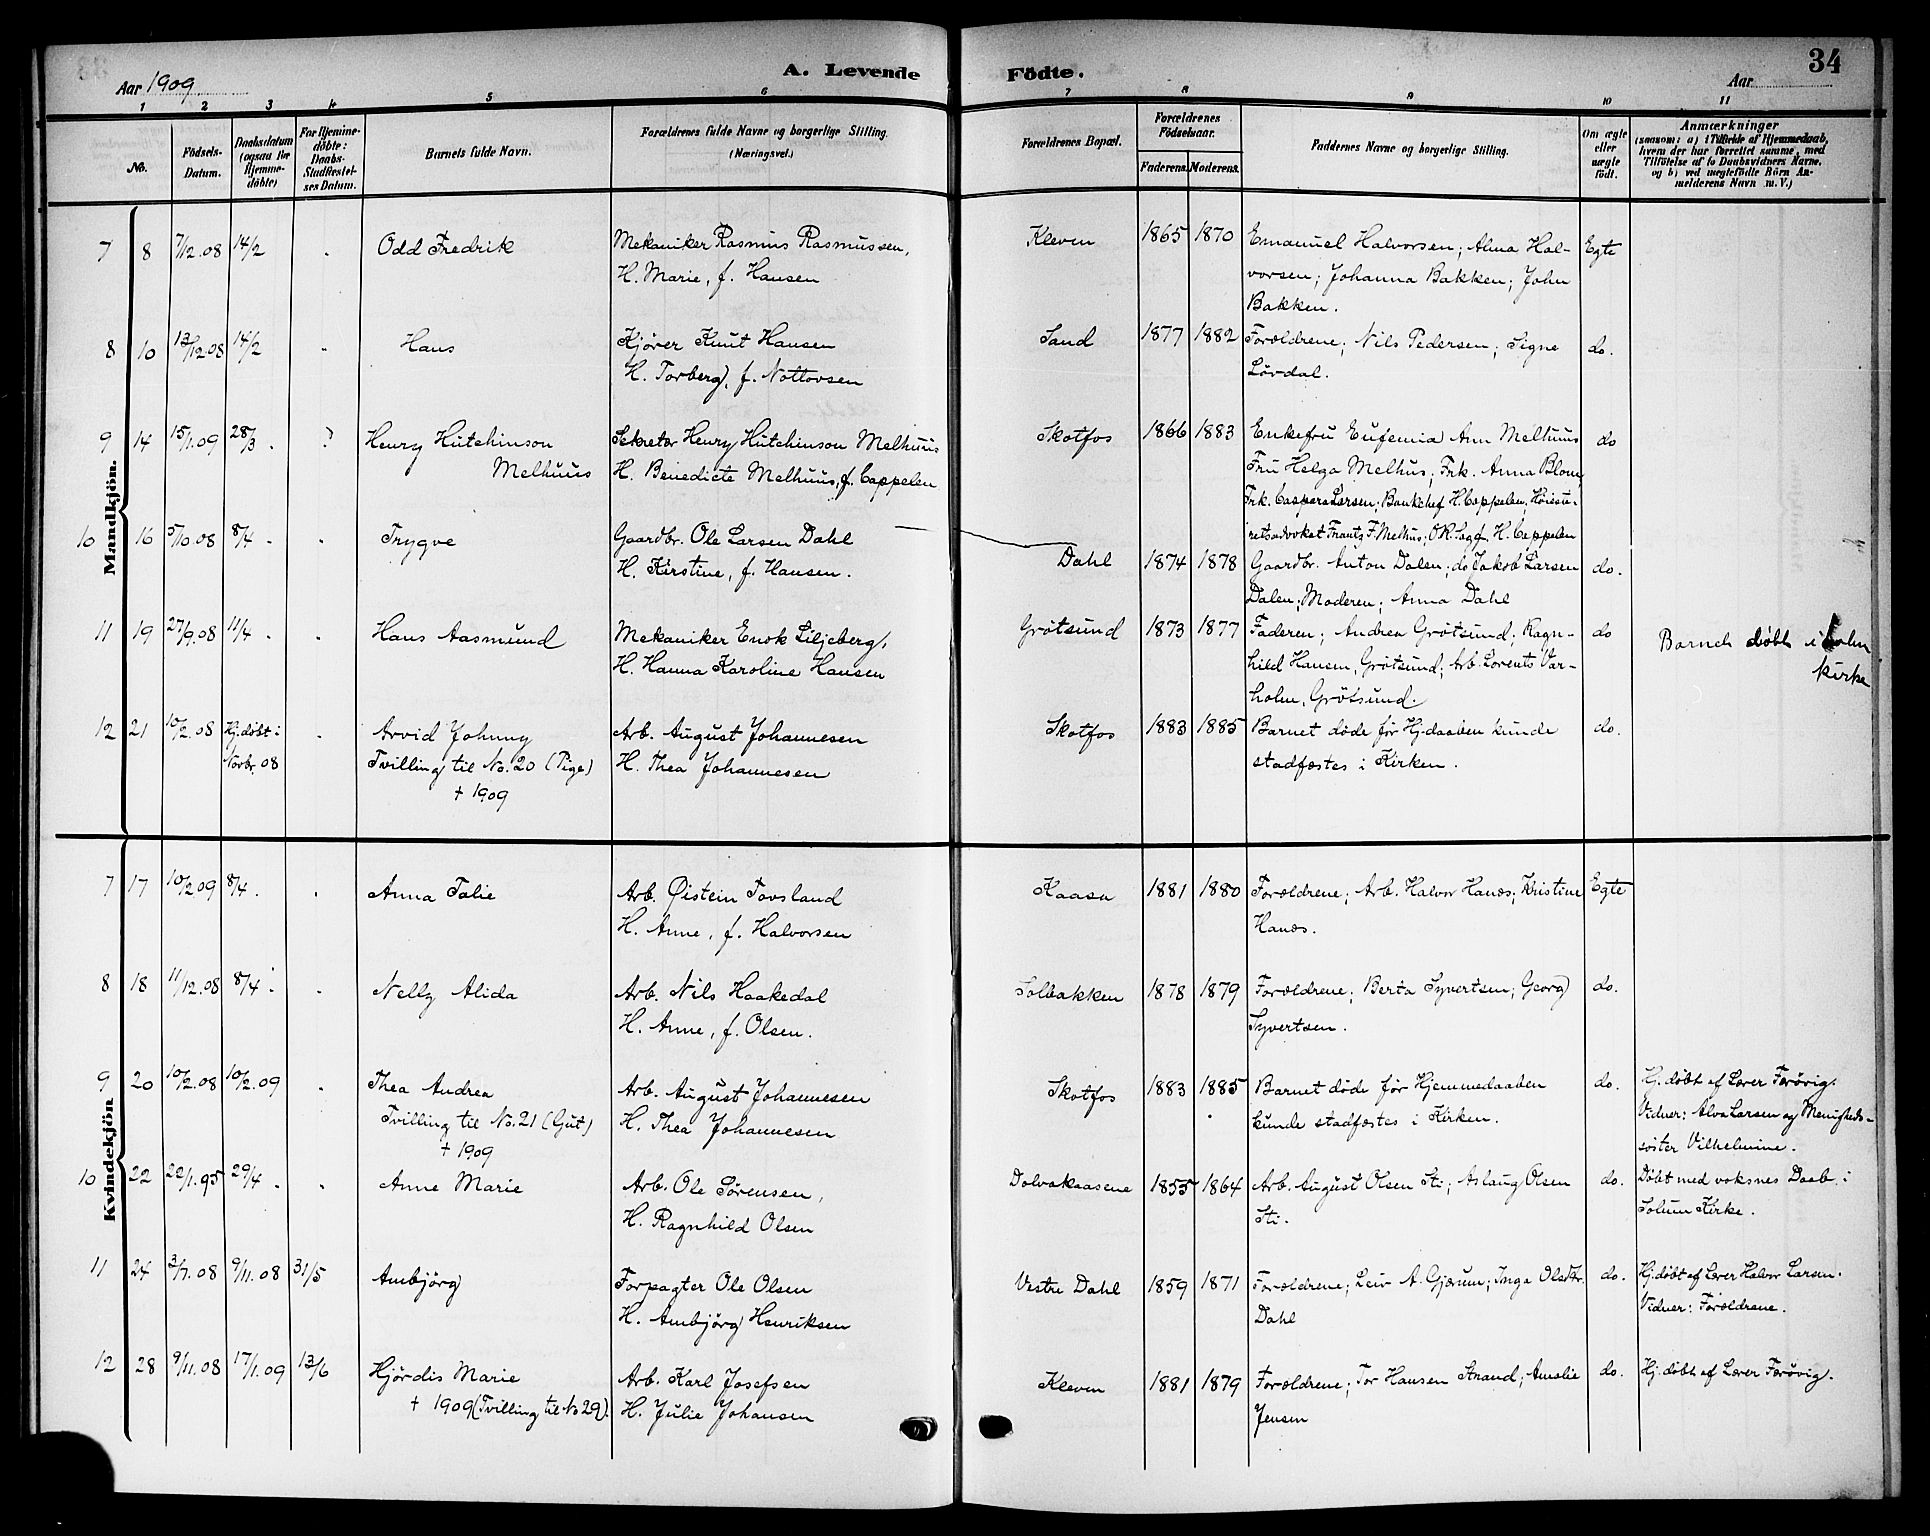 34
Aar 1909
A. Levende Födte.
Aar
1 2 3 4 5 6 7 8 9 10 11
No.
Födsels-Datum.
Daabsdatum (ogsaa for Hjemme-döbte)
For Hjemme-döbte: Daabs-Stadfæstel-ses Datum.
Barnets fulde Navn.
Forældrenes fulde Navne og borgerlige Stilling.
(Næringsvei.)
Forældrenes Bopæl.
Forældrenes Födselsaar.
Faderens. Moderens.
Faddernes Navne og borgerlige Stilling.
Om ægte eller uægte födt.
Anmærkninger
(saasom: a) i Tilfælde af Hjemmedaab,
hvem der har forrettet samme, med
Tilföielse af to Daabsvidners Navne,
og b) ved uægtefödte Börn An-
melderens Navn m. V.)
Mandkjön.
7 8 7/12.08 14/2 Odd Fredrik
Mekaniker Rasmus Rasmussen,
H. Marie, f. Hansen
Kleven 1865 1870
Emanuel Halvorsen; Alma Hal-
vorsen; Johanna Bakken; John
Bakken.
Egte
8 10 13/12.08 14/2 Hans
Kjörer Knut Hansen
H. Torberg, f. Nottovsen
Sand 1877 1882
Forældrene; Nils Pedersen; Signe
Lövdal.
do.
9 14 15/1.09 28/3. ? Henry Hutchinson
Melhuus
Sekretær Henry Hutchinson Melhuus
H. Benedicte Melhuus, f. Cappelen
Skotfos 1866 1883
Enkefru Eufemia Ann Melhuus
Fru Helga Melhus; Frk. Anna Blom,
Frk. Caspara Larsen; Bankchef H. Cappelen, Höieste-
retsadvokat Frantz F. Melhus; O.R. Sagf. H. Cappelen
do
10 16 5/10.08 8/4. Trygve
Gaardbr. Ole Larsen Dahl
H. Kirstine, f. Hansen.
Dahl 1874 1878
Gaardbr. Anton Dalen; do Jakob Larsen
Dalen; Moderen; Anna Dahl
do.
11 19 27/9.08 11/4. Hans Aasmund
Mekaniker Enok Liljeberg,
H. Hanna Karoline Hansen
Grötsund 1873 1877
Faderen; Andrea Grötsund; Ragn-
hild Hansen, Grötsund; Arb. Lorents Var-
holm, Grötsund.
do
Barnet döbt i
kirke
12 21 10/2.08 Hj.döbt i
Novbr. 08
Arvid Johnny
Tvilling til No. 20 (Pige)
† 1909
Arb. August Johannesen
H. Thea Johannesen
Skotfos 1883 1885
Barnet döde för Hj.daaben kunde
stadfæstes i Kirken.
do.
Kvindekjön
7 17 10/2 09 8/4. Anna Talie
Arb. Øistein Tovsland
H. Anne, f. Halvorsen
Kaasa 1881 1880
Forældrene; Arb. Halvor Hanæs; Kristine
Hanæs.
Egte
8 18 11/12.08 8/4. Nelly Alida
Arb. Nils Haakedal
H. Anne, f. Olsen.
Solbakken 1878 1879
Forældrene; Berta Syvertsen; Georg
Syvertsen.
do.
9 20 10/2.08 10/2.09 Thea Andrea
Tvilling til No. 21 (Gut)
† 1909
Arb. August Johannesen
H. Thea Johannesen
Skotfos 1883 1885
Barnet döde för Hjemmedaaben
kunde stadfæstes i Kirken.
do.
Hj. döbt af Lærer Færövig.
Vidner: Alva Larsen og Menigheds-
söster Vilhelmine.
10 22 22/1.95 29/4. Anne Marie
Arb. Ole Sörensen,
H. Ragnhild Olsen
Dolvakaasene 1855 1864
Arb. August Olsen Sti; Aslaug Olsen
Sti.
do.
Döbt med voksnes Daab i
Solum Kirke.
11 24 3/7.08 9/11.08 31/5 Ambjörg
Forpagter Ole Olsen
H. Ambjörg Henriksen
Vestre Dahl 1859 1871
Forældrene; Leiv A. Gjærum; Inga Olsdtr.
Dahl
do.
Hj.döbt af Lærer Halvor Larsen.
Vidner: Forældrene.
12 28 9/11.08 17/1.09 13/6 Hjördis Marie
† 1909 (Tvilling til No 29).
Arb. Karl Josefsen
H. Julie Johansen
Kleven 1881 1879
Forældrene; Tor Hansen Strand; Amalie
Jensen
do.
Hj. döbt af Lærer Færövig.